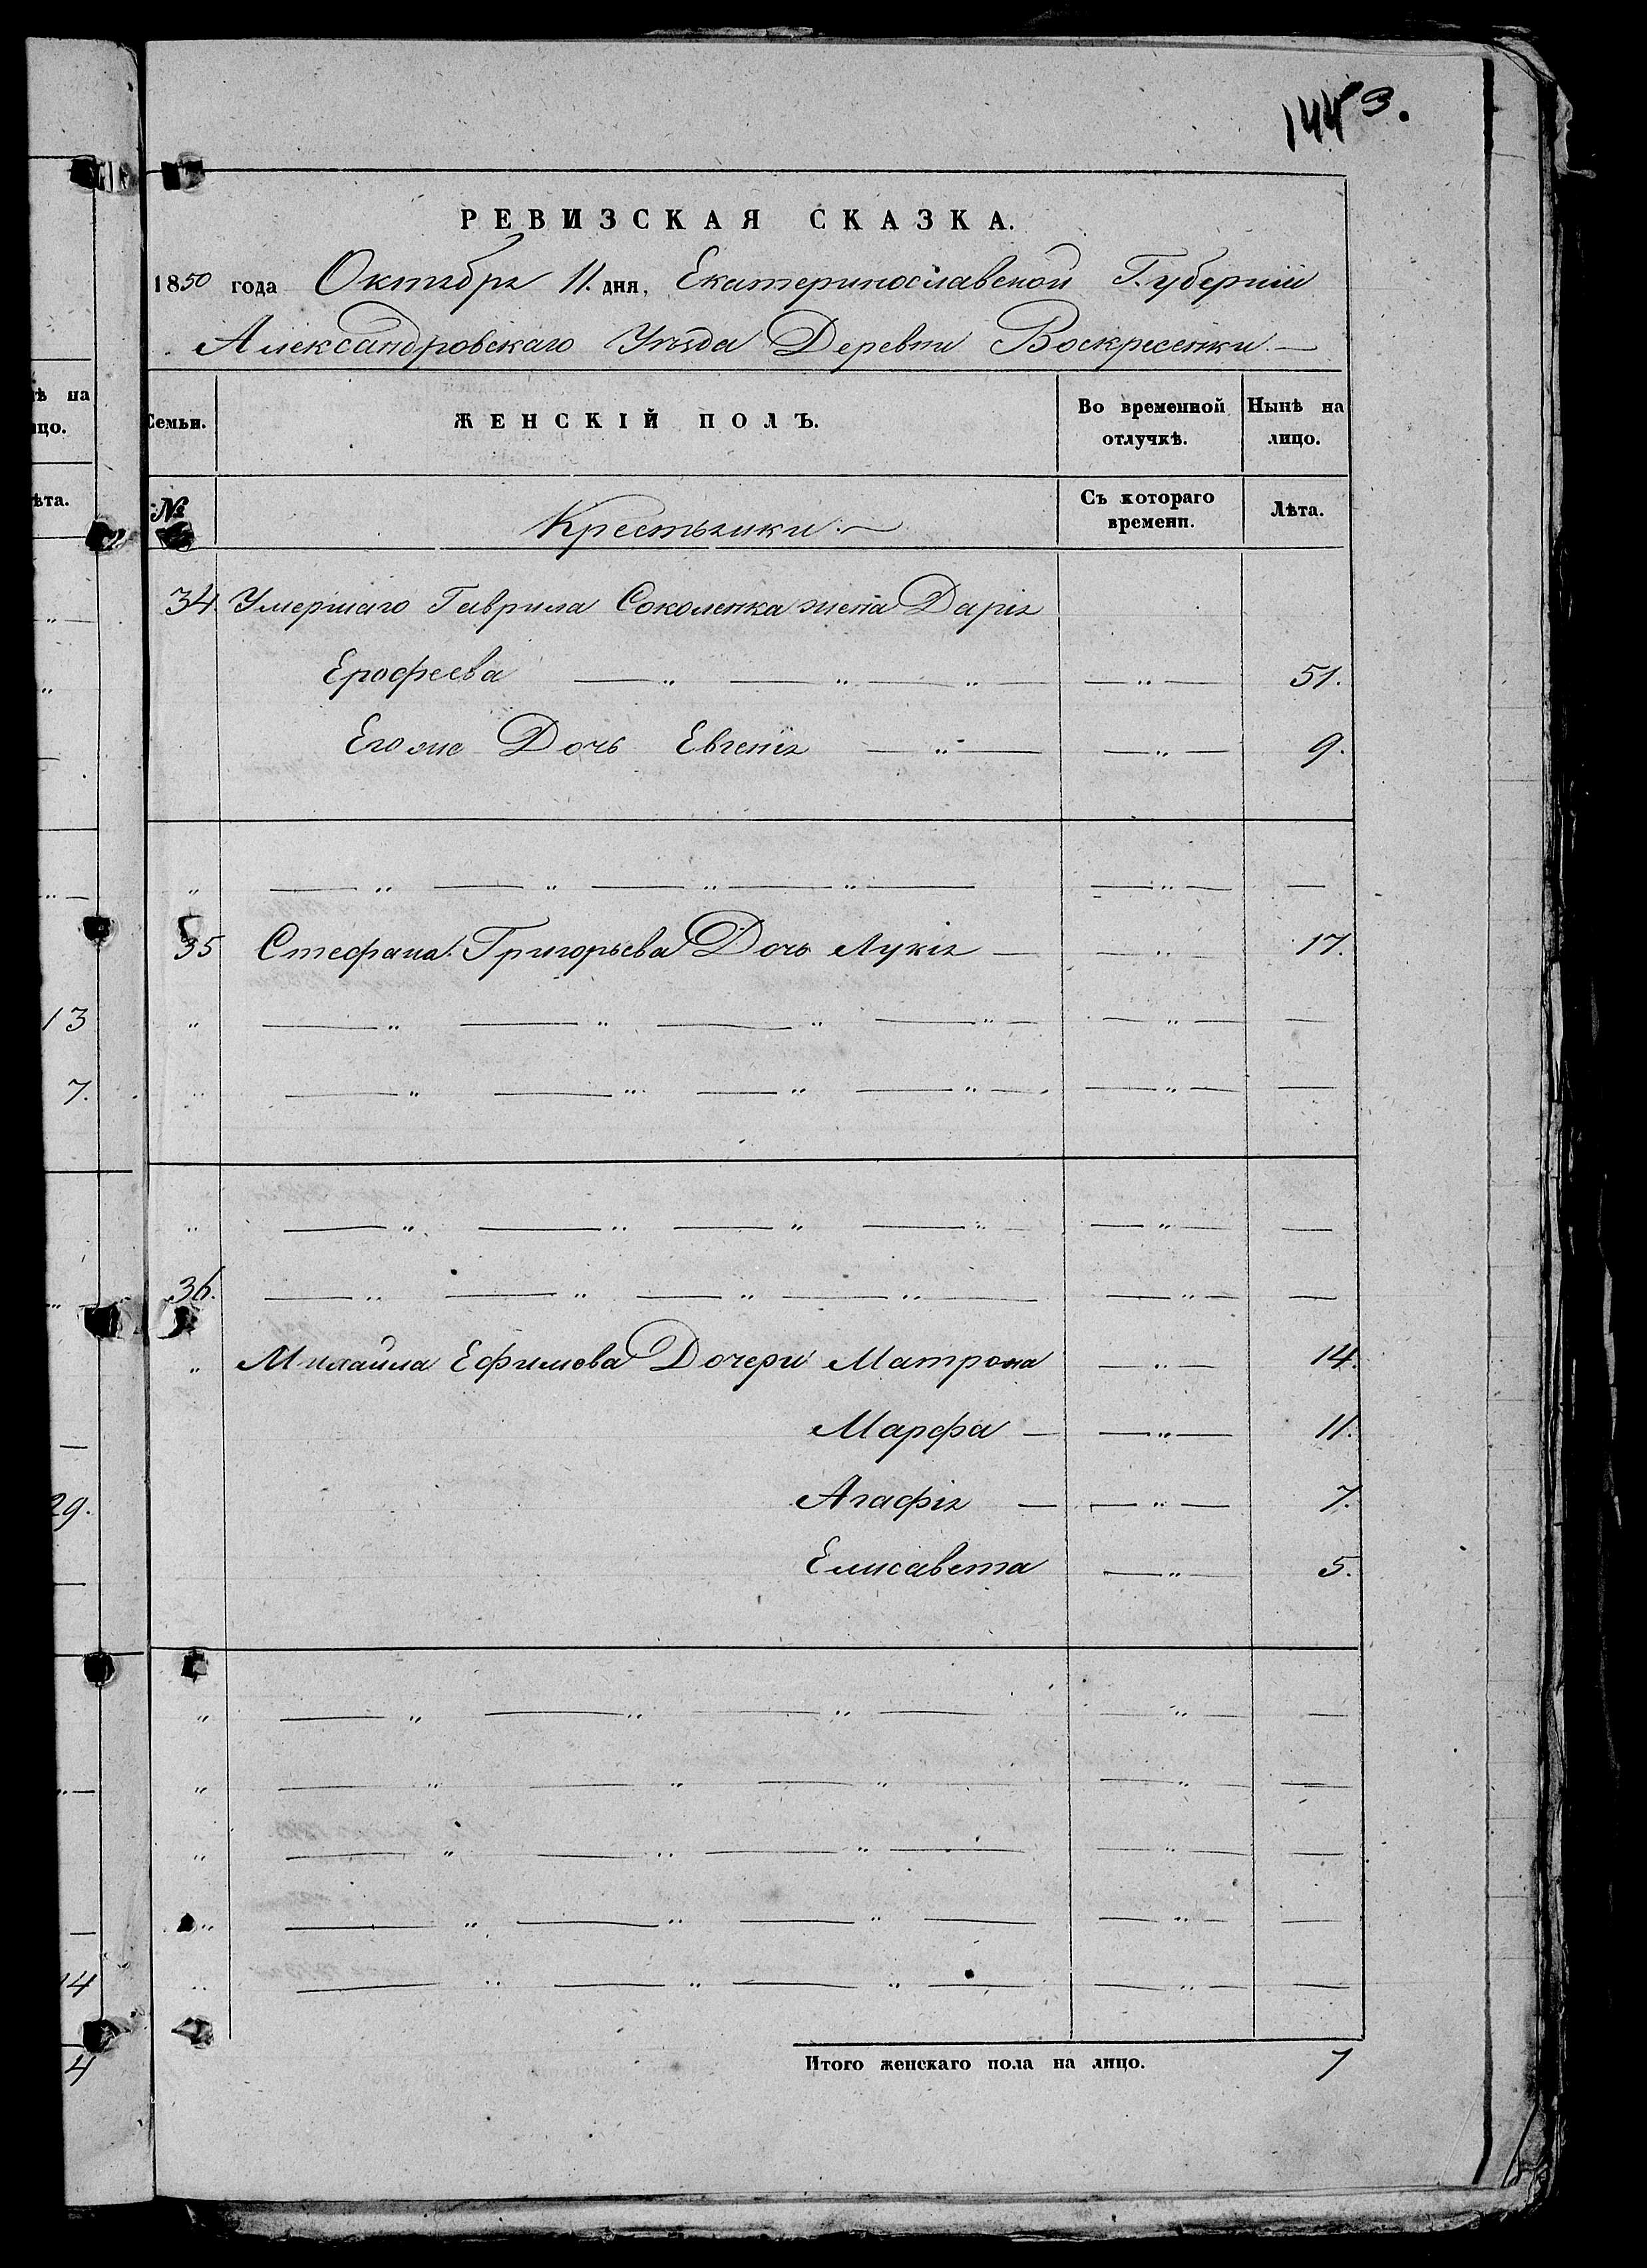 144 3.
РЕВИЗСКАЯ СКАЗКА.
1850 года Октября 11. дня, Екатеринославской Губерніи
Александровскаго Уѣзда Деревни Воскресенки.—
ѣ на
цо.
Семьи.
ЖЕНСКІЙ ПОЛЪ.
Во временной отлучкѣ.
Нынѣ на лицо.
ѣта.
№
Крестьянки.—
Съ котораго времени.
Лѣта.
34 Умершаго Гаврила Соколенка жена Дарія
Ерофеева — „ — „ — „ — — „ — 51.
Его же Дочь Евгенія — „ — — „ — 9.
„ — „ — „ — „ — „ — — „ — —
35 Стефана Григорьева Дочь Лукія — — „ — 17.
13 „ — „ — „ — „ — „ — — „ — —
7. „ — „ — „ — „ — „ — — „ — —
„ — „ — „ — „ — „ — — „ — —
36. — „ — „ — „ — „ — — „ — —
„ Михаила Ефимова Дочери Матрона — „ — 14.
Марфа — — „ — 11.
29. Агафія — — „ — 7.
Елисавета — „ — 5.
„ — „ — „ — „ — — „ — —
„ — „ — „ — „ — — „ — —
„ — „ — „ — „ — — „ — —
„ — „ — „ — „ — — „ — —
14 „ — „ — „ — „ — — „ — —
4 Итого женскаго пола на лицо. 7